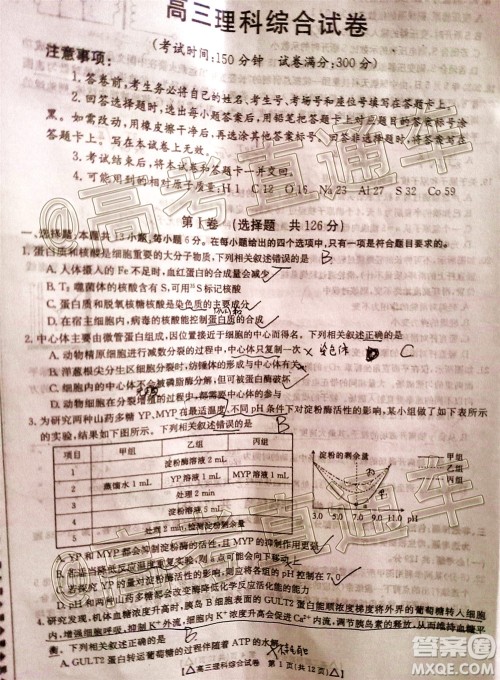 高三理科综合试卷
(考试时间:150分钟 试卷满分:300分)
注意事项:
1.答卷前,考生务必将自己的姓名、考生号、考场号和座位号填写在答题卡上。
2.回答选择题时,选出每小题答案后,用铅笔把答题卡上对应题目的答案标号涂
黑。如需改动,用橡皮擦干净后,再选涂其他答案标号。回答非选择题时,将答案写在
答题卡上。写在本试卷上无效。
3.考试结束后,将本试卷和答题卡一并交回。
4.可能用到的相对原子质量:H 1 C 12 O 16 Na 23 Al 27 S 32 Co 59
第Ⅰ卷 (选择题 共126分)
一、选择题:本题共13小题,每小题6分。在每小题给出的四个选项中,只有一项是符合题目要求的。
1.蛋白质和核酸是细胞重要的大分子物质。下列相关叙述错误的是 B
A.人体摄入的Fe不足时,血红蛋白的含量会减少
B.T2噬菌体的核酸可含有35S标记
C.蛋白质和脱氧核糖核酸是染色质的主要成分
D.在宿主细胞内,病毒的核酸能控制蛋白质的合成
2.中心体主要由微管蛋白组成,因位置接近于细胞的中心而得名。下列相关叙述正确的是
A.动物精原细胞进行减数分裂的过程中,中心体只复制一次 × 染色体 D C
B.洋葱根尖分生区细胞分裂时,纺锤体的形成与中心体有关
C.中心体不会被磷脂酶分解,但可被蛋白酶破坏
D.动物细胞有丝分裂的过程中,中心体在分裂前期复制
3.为研究两种山药多糖YP、MYP在最适温度、不同pH条件下对淀粉酶活性的影响,某小组做了如下表所示
的实验,结果如下图所示。下列相关叙述错误的是 B
项目 甲组 乙组 丙组
1 淀粉酶溶液 2 mL
2 蒸馏水 1 mL YP溶液 1 mL MYP溶液 1 mL
3 处理 2 min
4 淀粉溶液 5 mL
5 处理 2 min,检测淀粉剩余量
淀粉的剩余量
甲组
乙组
丙组
a
3.0 5.0 7.0 9.0 11.0 pH
A.YP和MYP都能抑制淀粉酶的活性,且MYP的抑制作用更大
B.若适当降低反应温度重复实验,则a点可能会向下移动
C.若探究YP的量对淀粉酶活性的影响,则应将各组的pH控制在7.0
D.YP和MYP可能影响了淀粉酶降低化学反应活化能的能力
4.研究发现,机体血糖浓度升高后,胰岛B细胞通过细胞膜上的GULT2蛋白顺浓度梯度将外界的葡萄糖转入细
胞内,增强细胞呼吸,抑制K+外流,细胞内K+浓度升高会促进Ca2+内流,从而促进胰岛素的分泌。
下列相关叙述错误的是 B
A.GULT2蛋白转运葡萄糖的过程伴随着ATP的水解 ×
高三理科综合试卷 第1页(共12页)
@高考直通车
答案圈
MXQE.COM